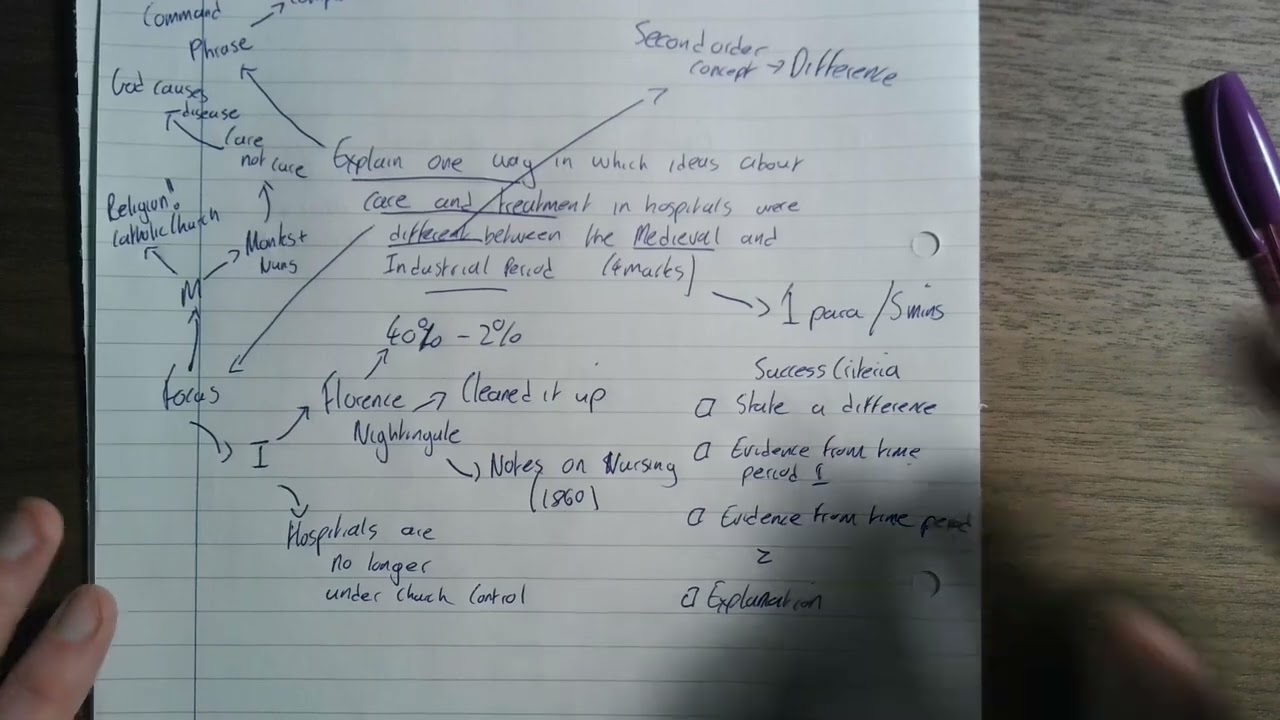 Command
Phrase
Second order
concept → Difference
God causes
disease
Care
not care
Explain one way in which ideas about
care and treatment in hospitals were
different between the Medieval and
Industrial Period (4 marks)
Religion!
Catholic Church
Monks +
Nuns
M
→ 1 para / 5 mins
40% - 2%
Focus
I
Florence
Nightingale
Cleared it up
Notes on Nursing
(1860)
Hospitals are
no longer
under church control
Success Criteria
□ State a difference
□ Evidence from time
period 1
□ Evidence from time period
2
□ Explanation